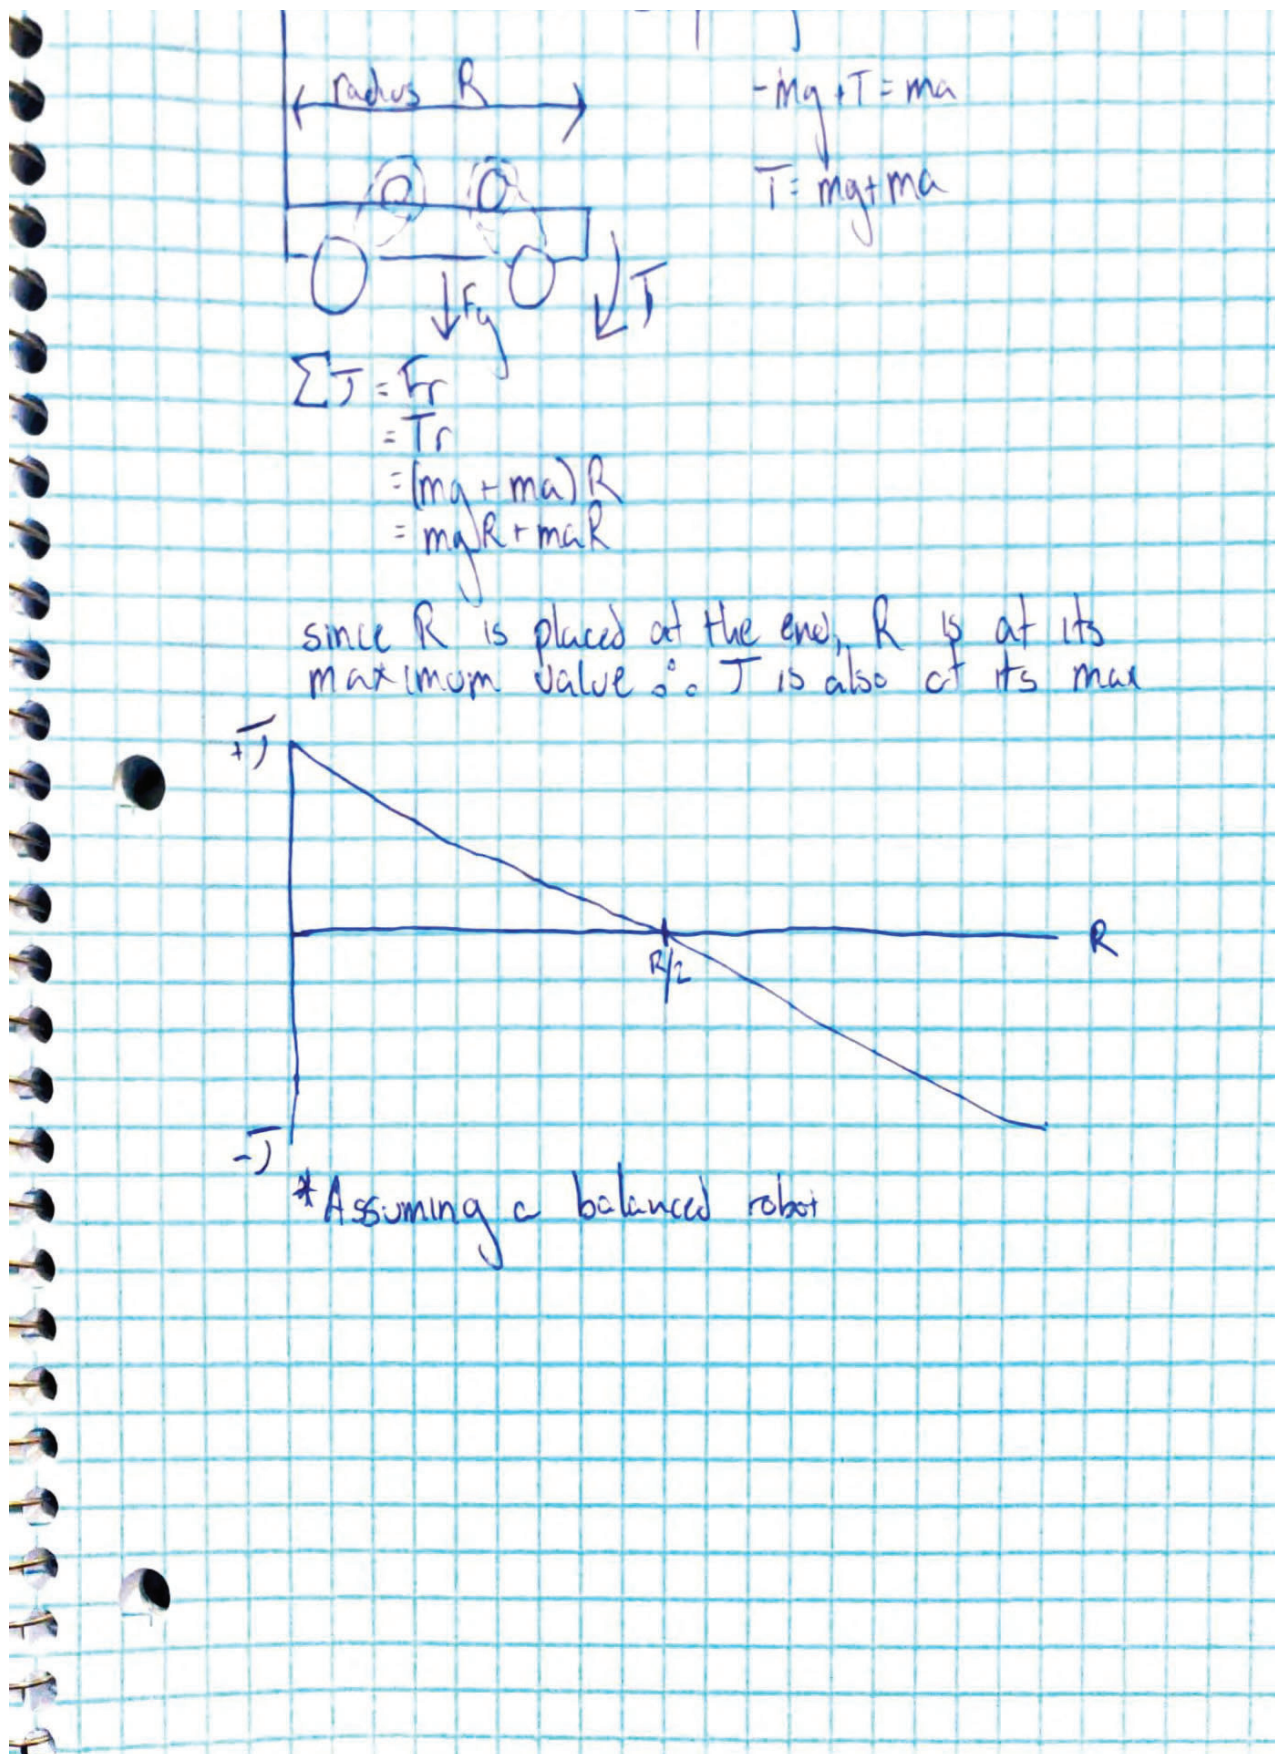 radius R
-mg + T = ma
T = mg + ma
Fg
τ
Στ = Fr
= Tr
= (mg + ma) R
= mgR + maR
since R is placed at the end, R is at its
maximum value ∴ τ is also at its max
+τ
R
R/2
-τ
*Assuming a balanced robot